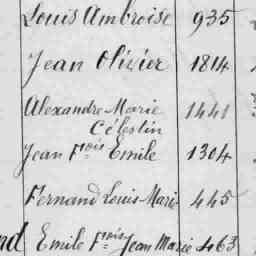 Louis Ambroise 935
Jean Olivier 1814
Alexandre Marie 1441
Célestin
Jean Fois Emile 1304
Fernand Louis Marie 445
nd Emile Fois Jean Marie 463